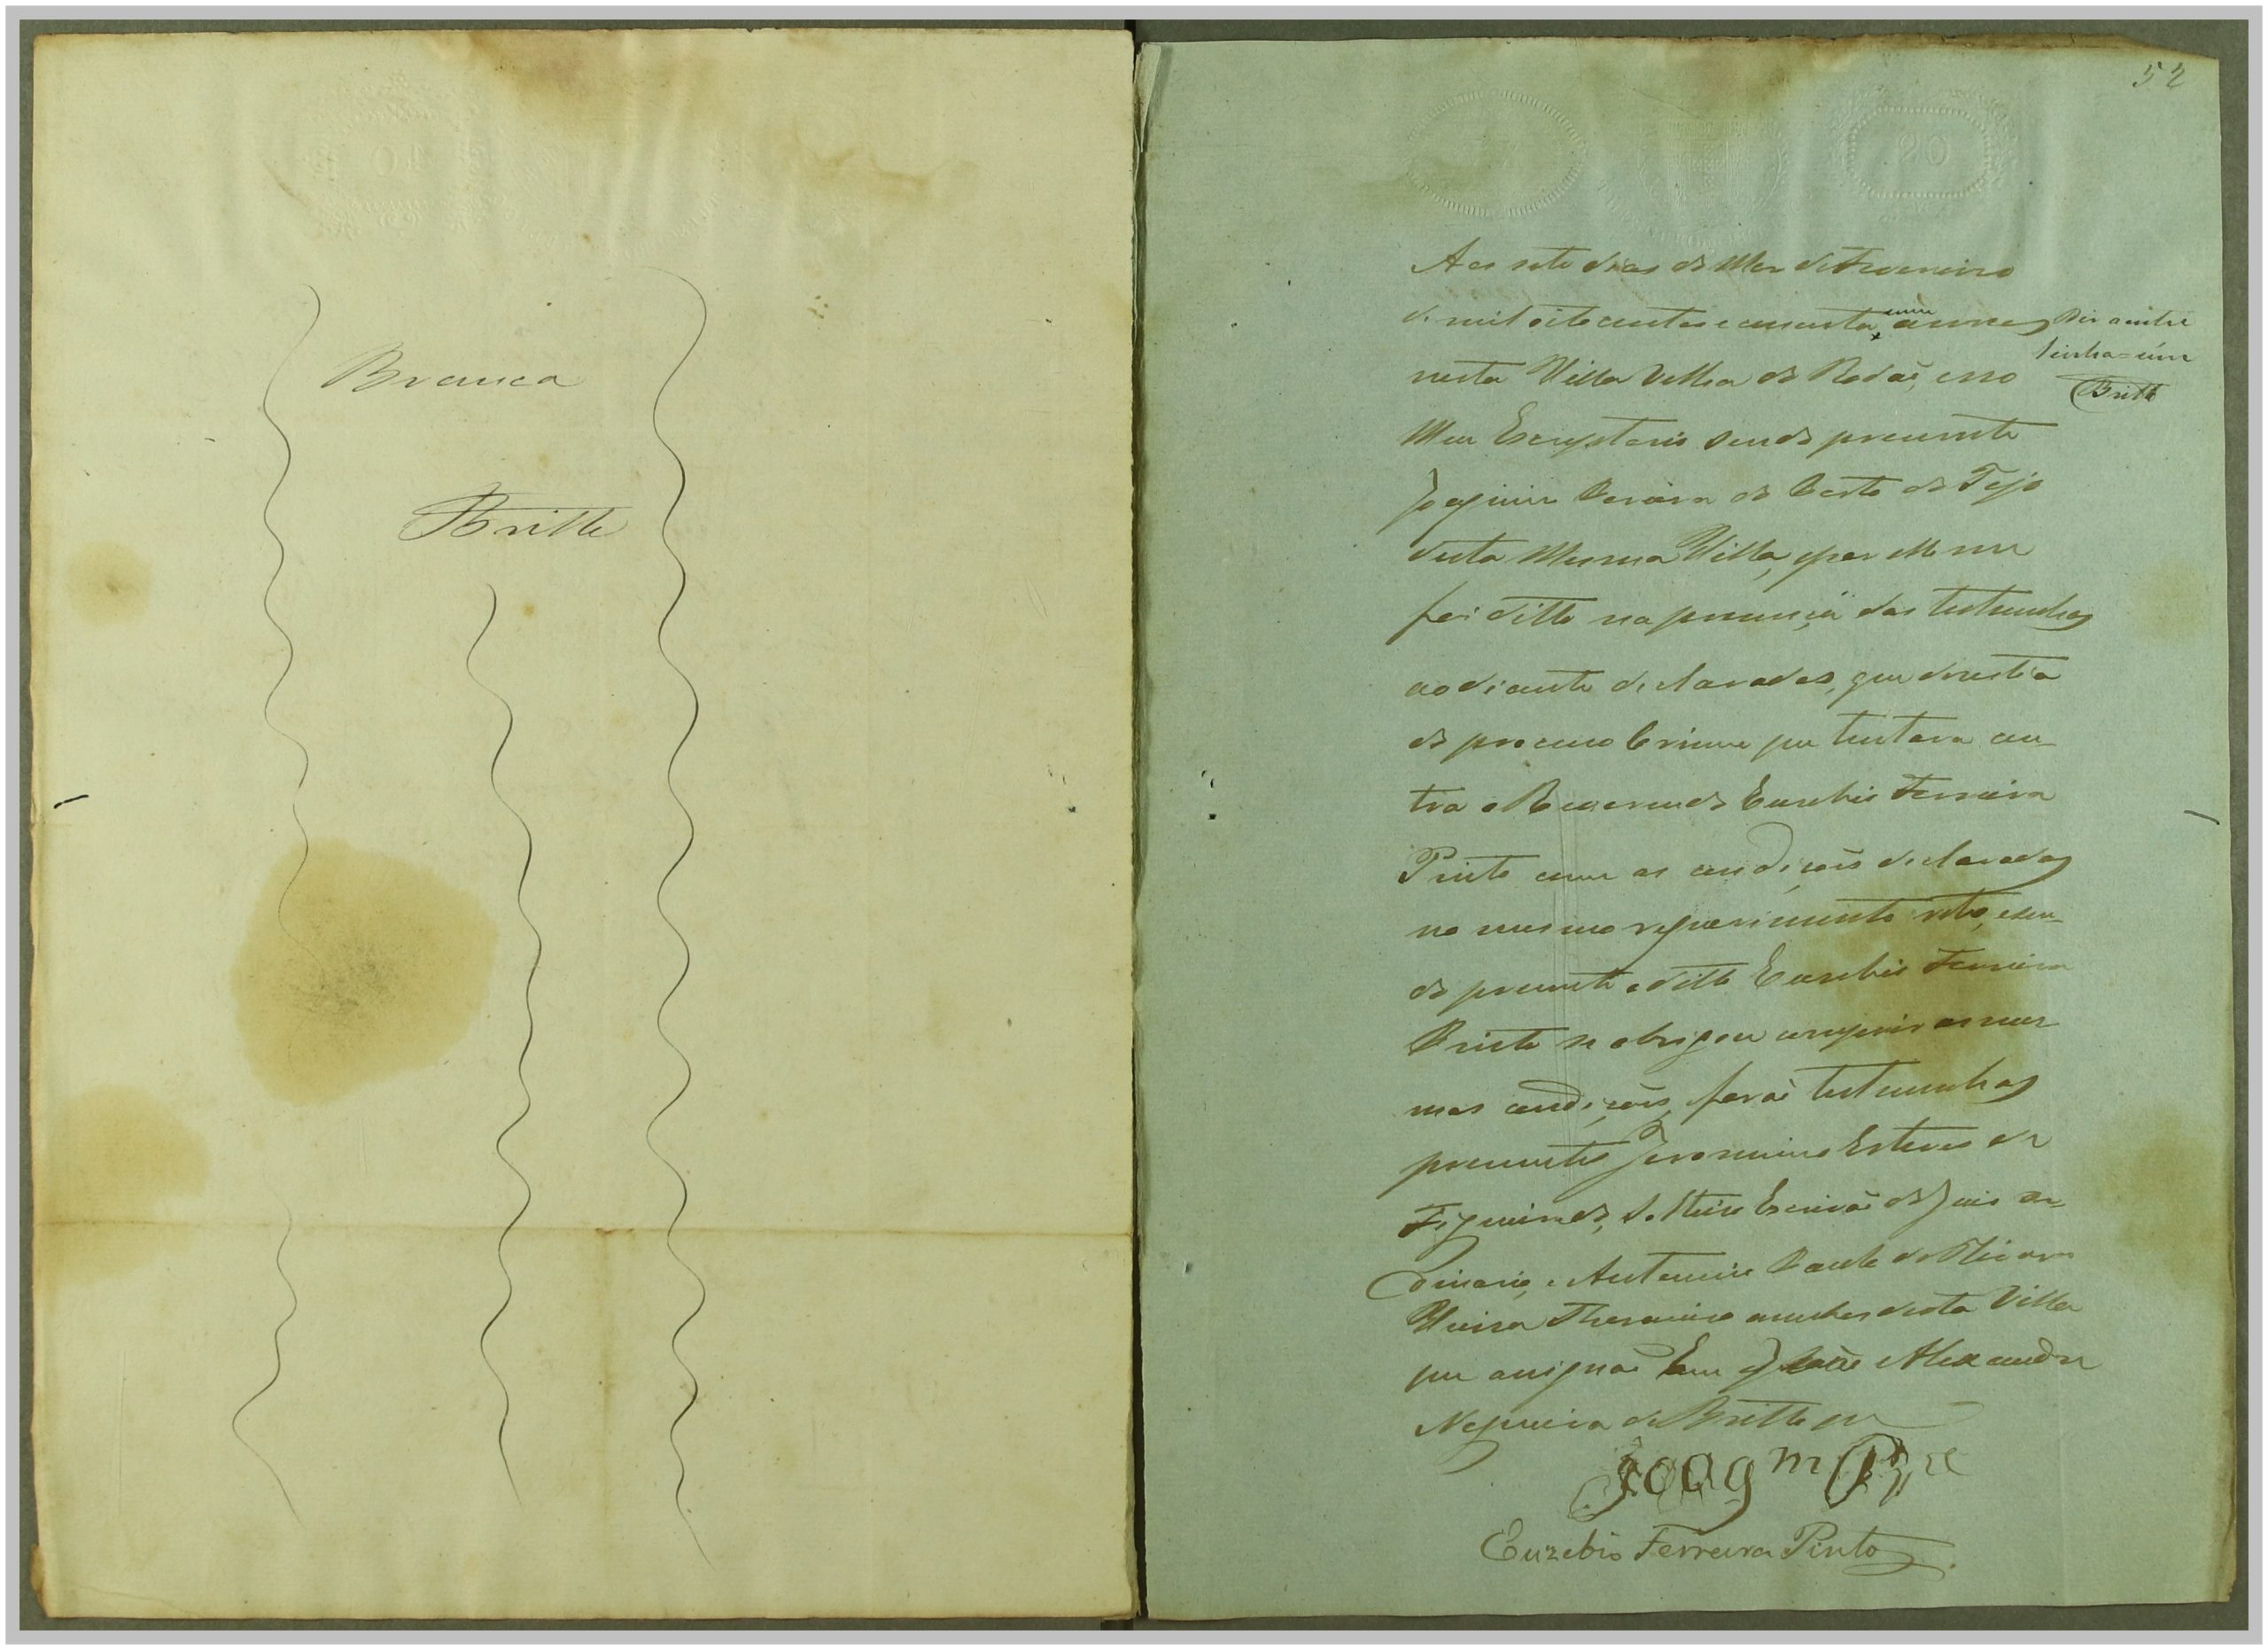 Branca
Britto
52
20
Aos sete dias do Mes de Fevereiro
de mil oito centos e cincoenta e um annos
Diz a entre
linha = um
Britto
nesta Villa Velha do Rodaõ, e no
Meu Escryptorio sendo prezente
Joaquim Pereira do Porto do Tejo
desta Mesma Villa, e por elle me
foi ditto na prezença das testemunhas
ao diante declaradas, que desestia
do processo Crime que tentava con-
tra o Reverendo Euzebio Ferreira
Pinto com as condiçoens declaradas
no mesmo requerimento retro, e sen-
do prezente o ditto Euzebio Ferreira
Pinto se obrigou a cumprir as mes-
mas condiçoens, foraõ testemunhas
prezentes Jeronimo Esteves de
Figueiredo, solteiro Escrivaõ do Juis or-
dinario, e Antonio
Vieira Theronimo ambos desta Villa
que assignaõ Eu Alexandre
Nogueira de Britto
Joaqm Pr.ª
Euzebio Ferreira Pinto